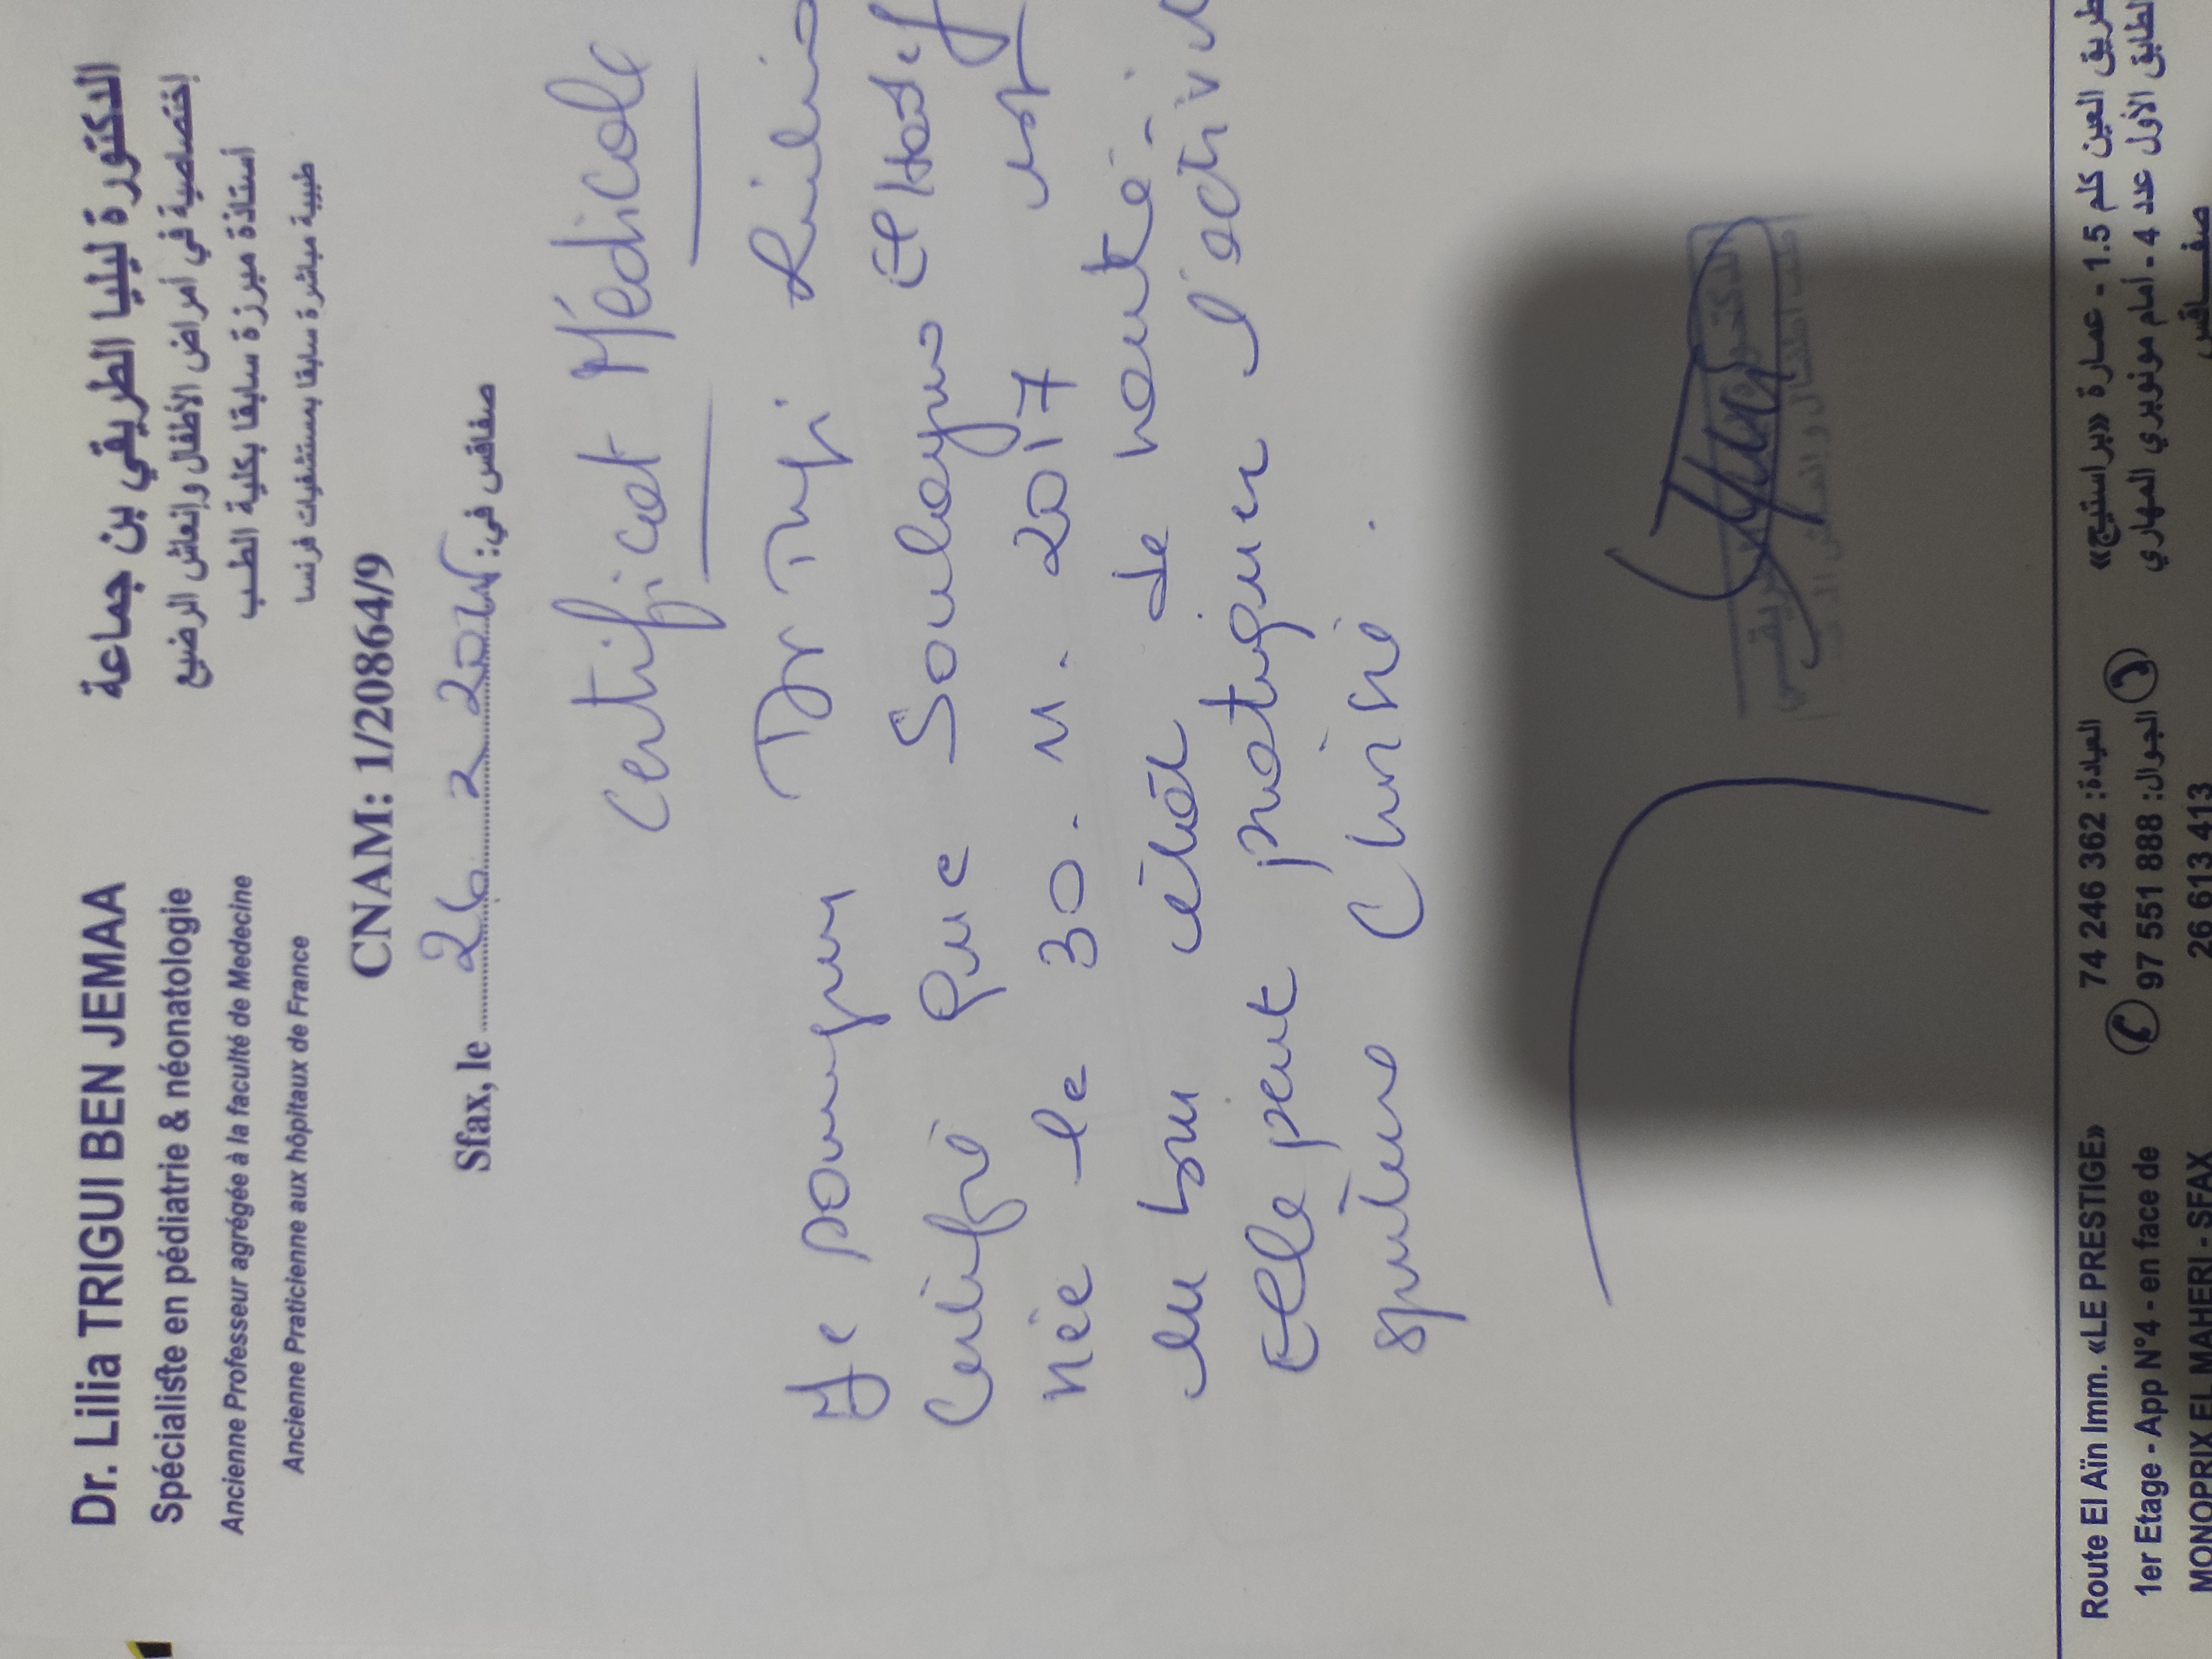 Dr. Lilia TRIGUI BEN JEMAA
Spécialiste en pédiatrie & néonatologie
Ancienne Professeur agrégée à la faculté de Medecine
Ancienne Praticienne aux hôpitaux de France
الدكتورة ليليا الطريقي بن جماعة
إختصاصية في أمراض الأطفال وإنعاش الرضيع
أستاذة مبرزة سابقا بكلية الطب
طبيبة مباشرة سابقا بمستشفيات فرنسا
CNAM: 1/20864/9
Sfax, le 26 2 صفاقس في:
Certificat Médicale
Je Dr
Certifie que Soulayma
née le 30. 11. 2017 est
en bon état de santé
Elle peut pratiquer l'activi
Route El Aïn Imm. «LE PRESTIGE»
1er Etage - App N°4 - en face de
MONOPRIX EL MAHERI - SFAX
74 246 362 العيادة:
97 551 888 الجوال:
26 613 413
طريق العين كلم 1.5 - عمارة «براستيج»
الطابق الأول عدد 4 - أمام مونوبري المهاري
صفاقس